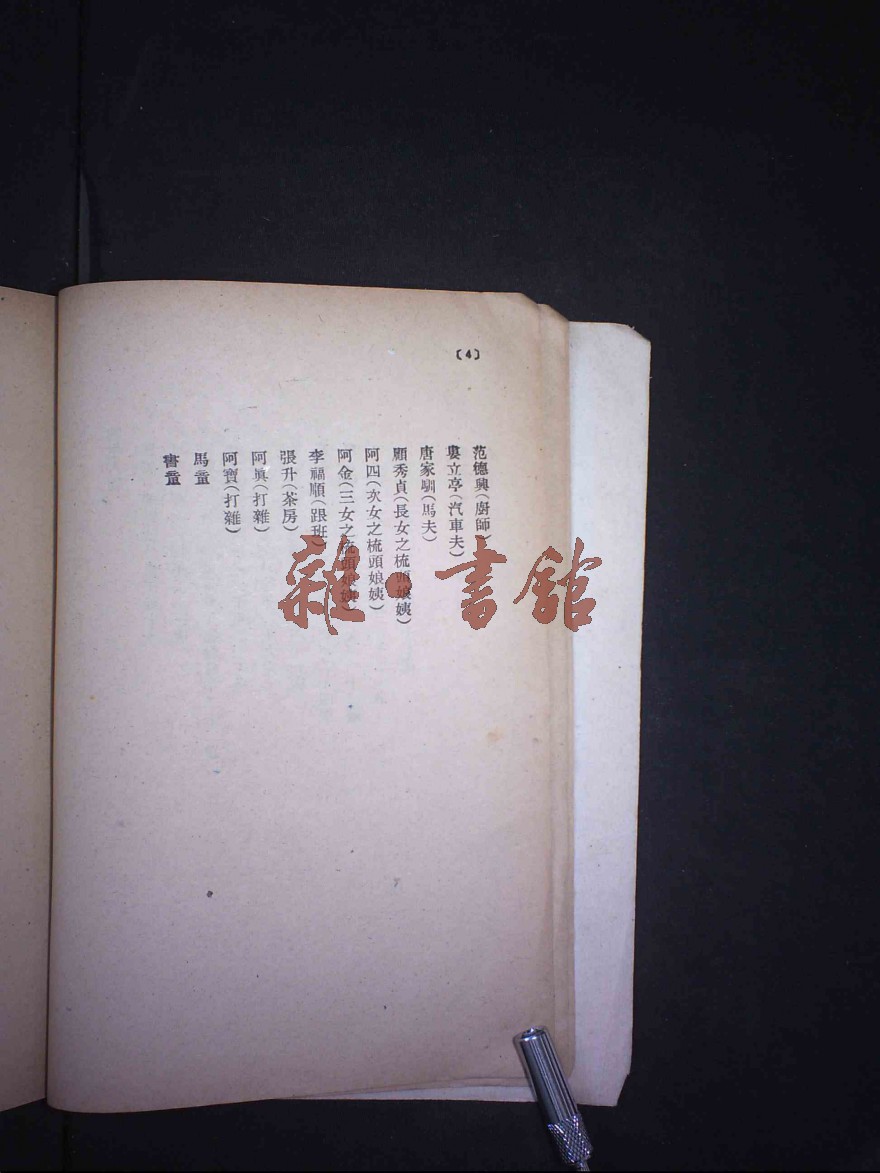 〔4〕
范德興(廚師)
婁立亭(汽車夫)
唐家馴(馬夫)
顧秀貞(長女之梳頭娘姨)
阿四(次女之梳頭娘姨)
阿金(三女之梳頭娘姨)
李福順(跟班)
張升(茶房)
阿眞(打雜)
阿寶(打雜)
馬童
書童
雜·書館